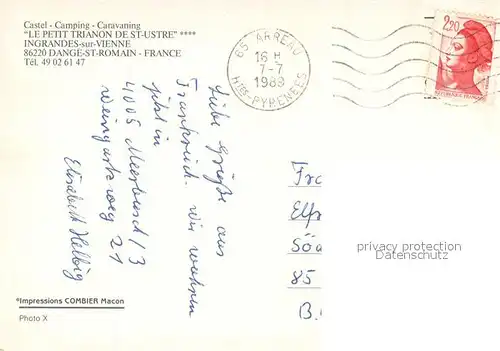 Castel - Camping - Caravaning
"LE PETIT TRIANON DE ST-USTRE" ****
INGRANDES-sur-VIENNE
86220 DANGÉ-ST-ROMAIN - FRANCE
Tél. 49 02 61 47
65 ARREAU
16 H
7-7
1989
HTES-PYRENEES
2,20
REPUBLIQUE FRANÇAISE
Liebe Grüße aus
Frankreich. Wir wohnen
jetzt in
4005 Meerbusch/3
Weingartsweg 21
Elisabeth Helbig
Fr
Elf
Söd
85
B.
privacy protection
Datenschutz
*Impressions COMBIER Macon
Photo X